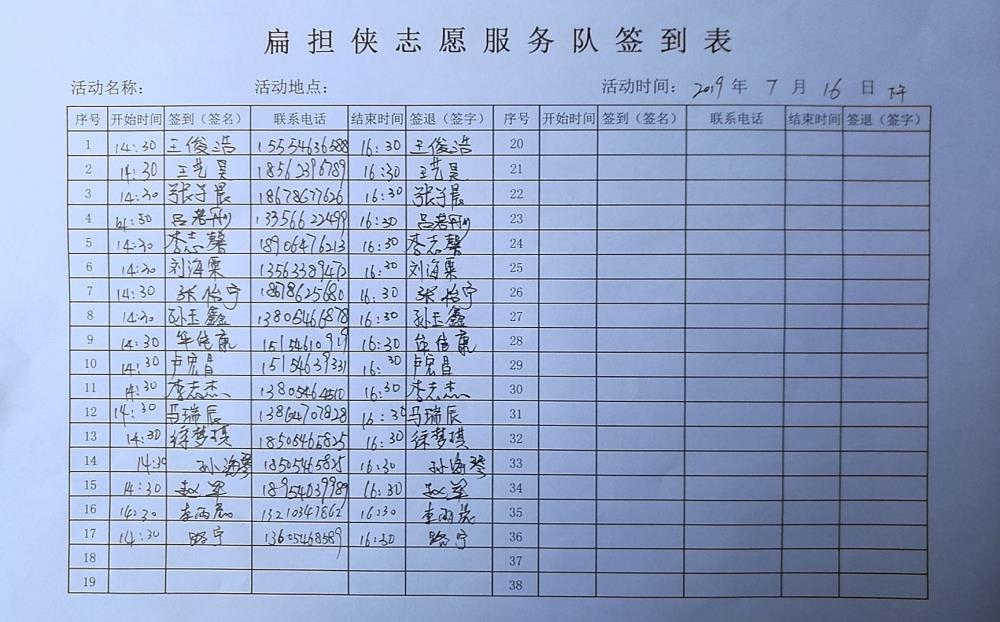 扁担侠志愿服务队签到表
活动名称： 活动地点： 活动时间： 2019 年 7 月 16 日 下午
序号 开始时间 签到（签名） 联系电话 结束时间 签退（签字） 序号 开始时间 签到（签名） 联系电话 结束时间 签退（签字）
1 14:30 王俊浩 15554636588 16:30 王俊浩 20
2 14:30 王艺昊 18562396789 16:30 王艺昊 21
3 14:30 张子晨 18678677626 16:30 张子晨 22
4 14:30 吕若刚 13356622499 16:30 吕若刚 23
5 14:30 李志馨 18906476213 16:30 李志馨 24
6 14:30 刘海粟 13563389472 16:30 刘海粟 25
7 14:30 张怡宁 18678625680 16:30 张怡宁 26
8 14:30 孙玉鑫 13805466878 16:30 孙玉鑫 27
9 14:30 16:30 28
10 14:30 卢宏昌 15154639331 16:30 卢宏昌 29
11 14:30 李志杰 13805464510 16:30 李志杰 30
12 14:30 马瑞辰 13864707828 16:30 马瑞辰 31
13 14:30 徐梦琪 18505465825 16:30 徐梦琪 32
14 14:30 孙海琴 18505465825 16:30 孙海琴 33
15 14:30 赵军 18954039989 16:30 赵军 34
16 14:30 李雨宸 13210347862 16:30 李雨宸 35
17 14:30 路宁 13605468589 16:30 路宁 36
18 37
19 38